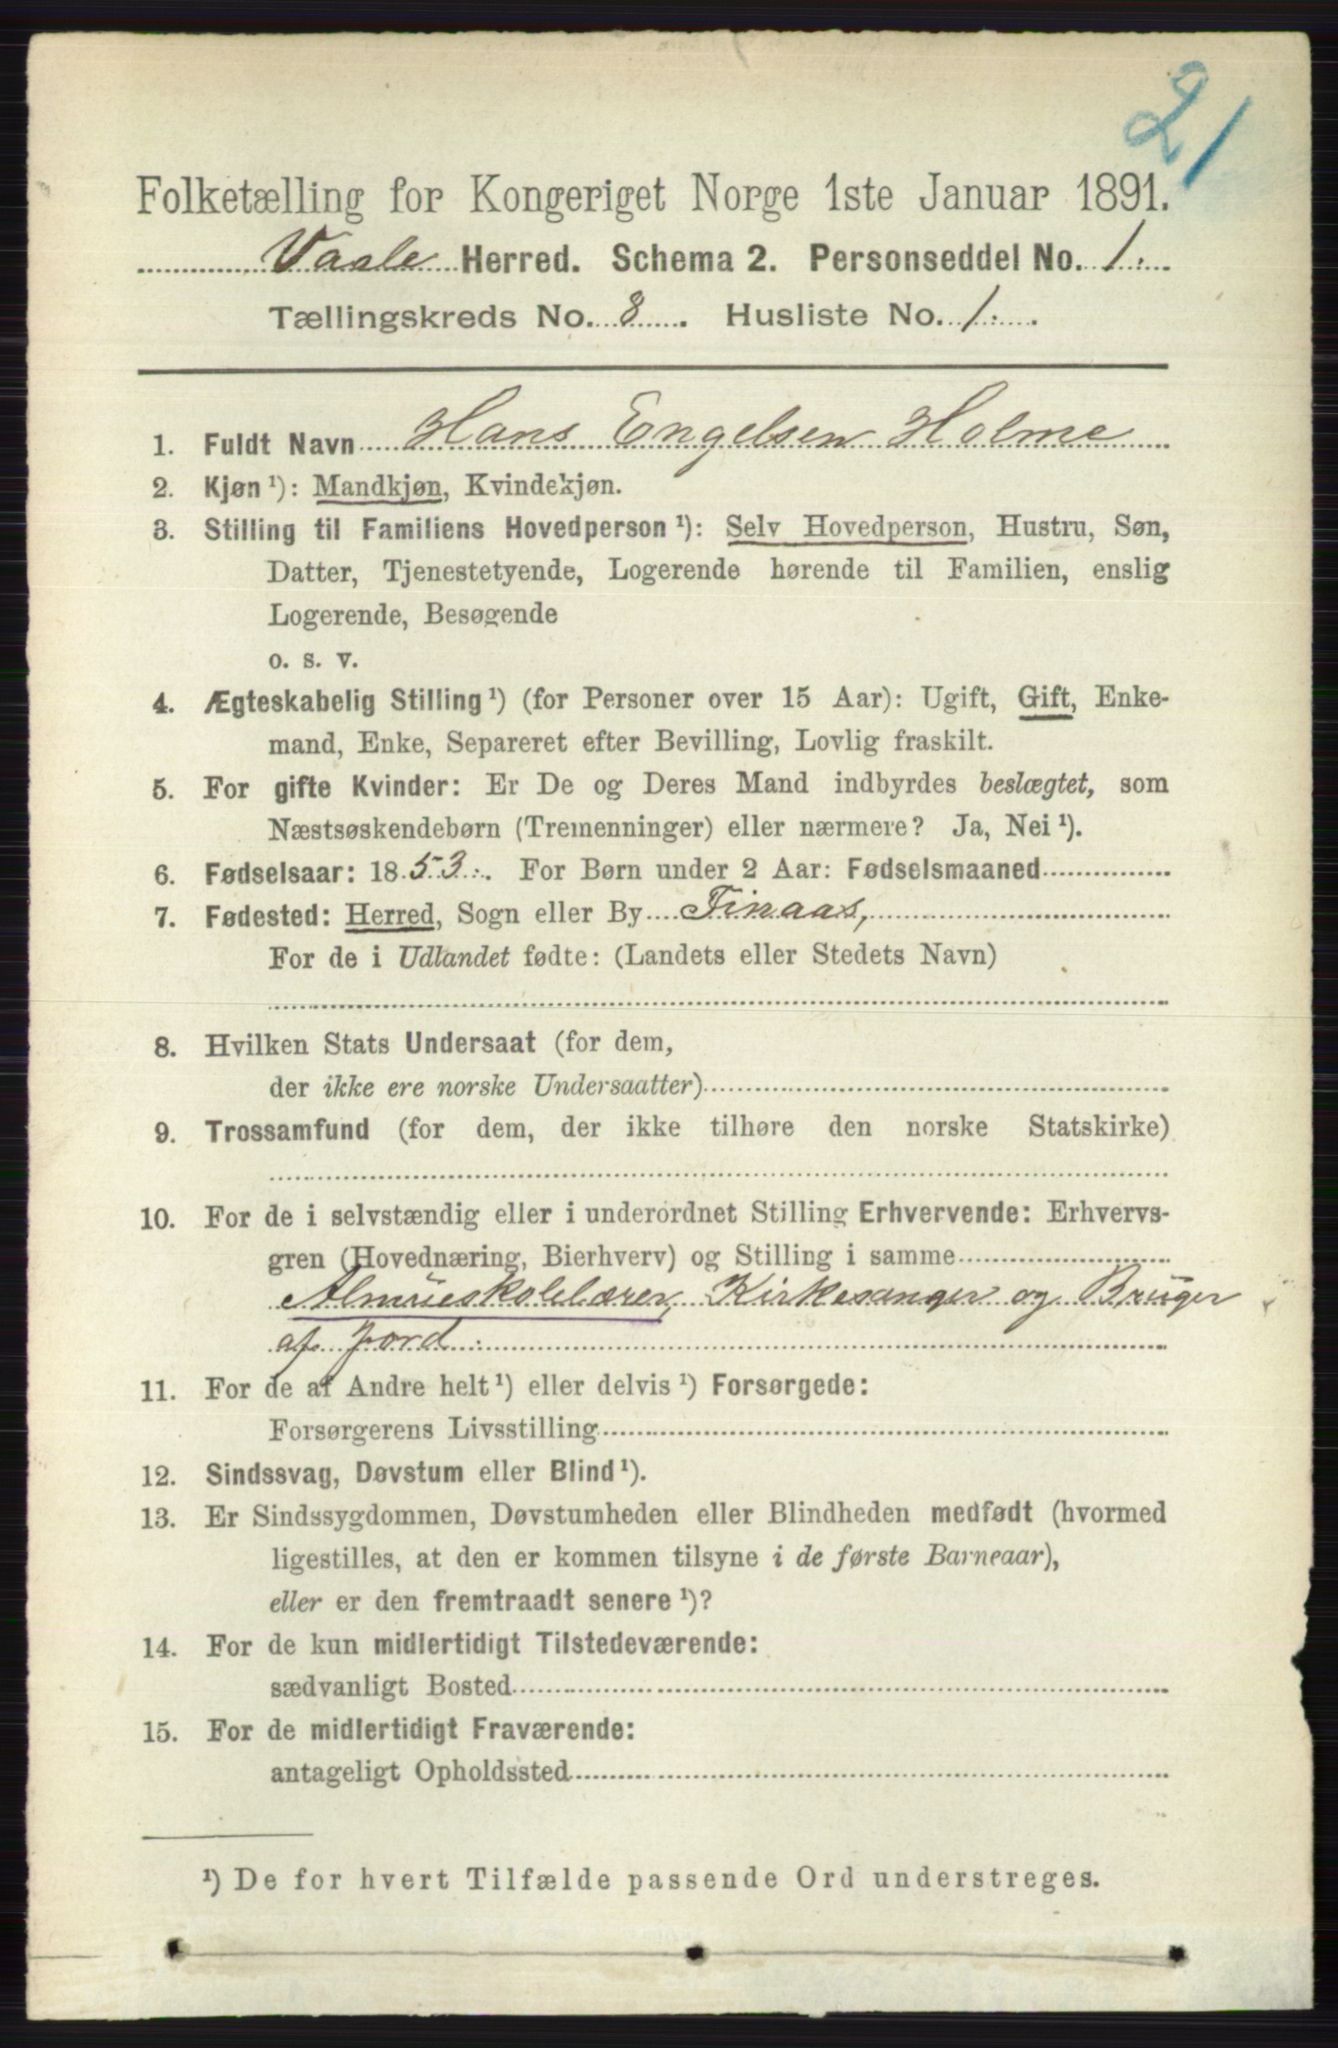 21
Folketælling for Kongeriget Norge 1ste Januar 1891.
Vaale Herred. Schema 2. Personseddel No. 1.
Tællingskreds No. 8. Husliste No. 1.
1. Fuldt Navn Hans Engelsen Holme
2. Kjøn ¹): Mandkjøn, Kvindekjøn.
3. Stilling til Familiens Hovedperson ¹): Selv Hovedperson, Hustru, Søn,
Datter, Tjenestetyende, Logerende hørende til Familien, enslig
Logerende, Besøgende
o. s. v.
4. Ægteskabelig Stilling ¹) (for Personer over 15 Aar): Ugift, Gift, Enke-
mand, Enke, Separeret efter Bevilling, Lovlig fraskilt.
5. For gifte Kvinder: Er De og Deres Mand indbyrdes beslægtet, som
Næstsøskendebørn (Tremenninger) eller nærmere? Ja, Nei ¹).
6. Fødselsaar: 1853. For Børn under 2 Aar: Fødselsmaaned
7. Fødested: Herred, Sogn eller By Finaas,
For de i Udlandet fødte: (Landets eller Stedets Navn)
8. Hvilken Stats Undersaat (for dem,
der ikke ere norske Undersaatter)
9. Trossamfund (for dem, der ikke tilhøre den norske Statskirke)
10. For de i selvstændig eller i underordnet Stilling Erhvervende: Erhvervs-
gren (Hovednæring, Bierhverv) og Stilling i samme
Almueskolelærer, Kirkesanger og Bruger
af Jord.
11. For de af Andre helt ¹) eller delvis ¹) Forsørgede:
Forsørgerens Livsstilling
12. Sindssvag, Døvstum eller Blind ¹).
13. Er Sindssygdommen, Døvstumheden eller Blindheden medfødt (hvormed
ligestilles, at den er kommen tilsyne i de første Barneaar),
eller er den fremtraadt senere ¹)?
14. For de kun midlertidigt Tilstedeværende:
sædvanligt Bosted
15. For de midlertidigt Fraværende:
antageligt Opholdssted
¹) De for hvert Tilfælde passende Ord understreges.